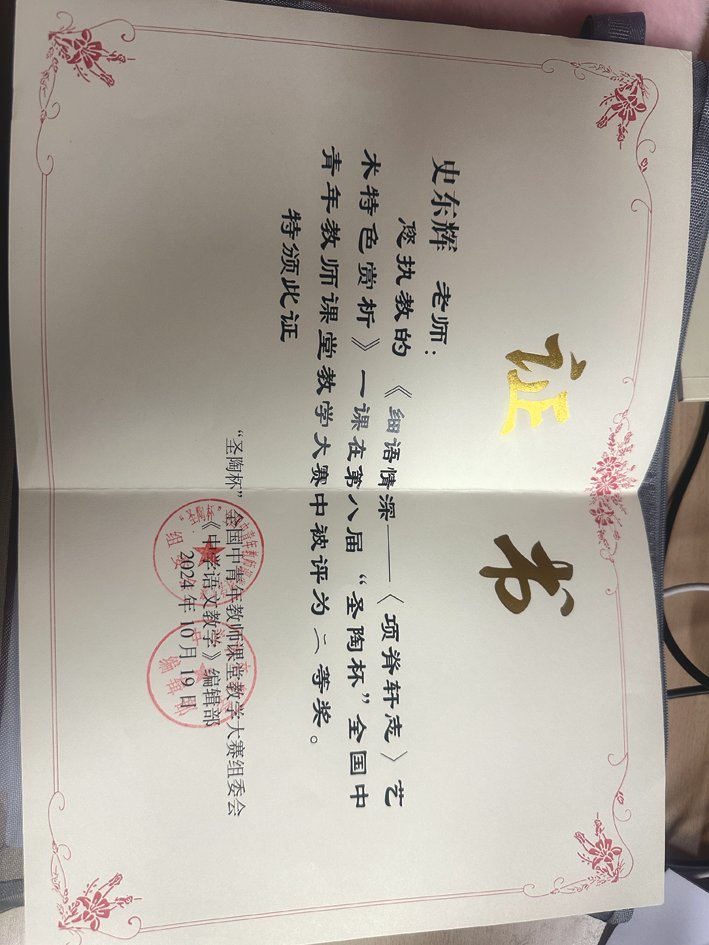 证书
史东辉 老师：
您执教的《细语情深——〈项脊轩志〉艺
术特色赏析》一课在第八届“圣陶杯”全国中
青年教师课堂教学大赛中被评为二等奖。
特颁此证
“圣陶杯”全国中青年教师课堂教学大赛组委会
《中学语文教学》编辑部
2024年10月19日